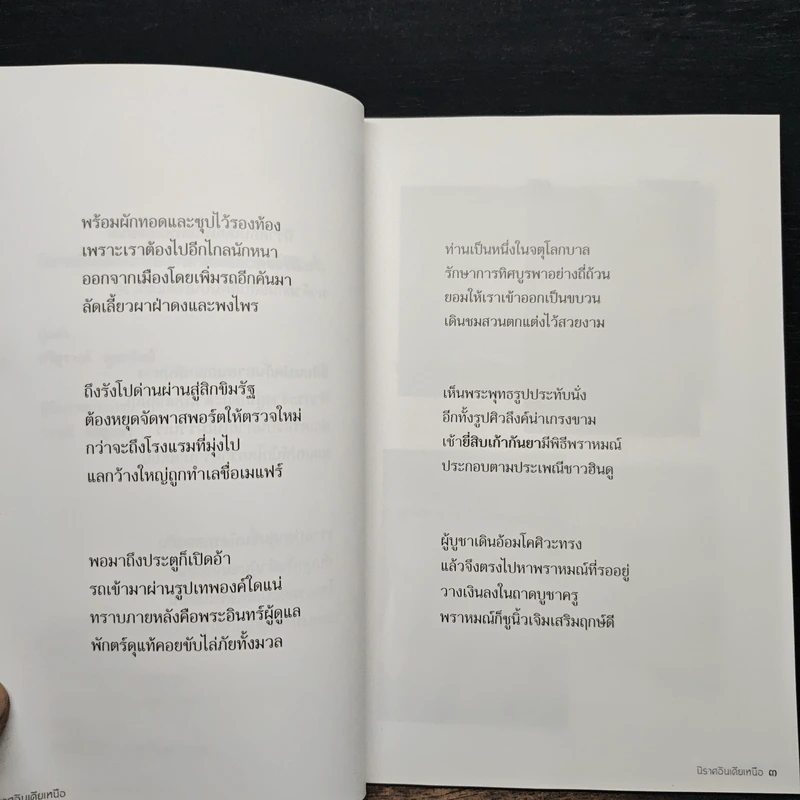 พร้อมผักทอดและซุปไว้รองท้อง
เพราะเราต้องไปอีกไกลนักหนา
ออกจากเมืองโดยเพิ่มรถอีกคันมา
ลัดเลี้ยวผาฝ่าดงและพงไพร
ถึงรังโปด่านผ่านสู่สิกขิมรัฐ
ต้องหยุดจัดพาสพอร์ตให้ตรวจใหม่
กว่าจะถึงโรงแรมที่มุ่งไป
แลกว้างใหญ่ถูกทำเลชื่อเมแฟร์
พอมาถึงประตูก็เปิดอ้า
รถเข้ามาผ่านรูปเทพองค์ใดแน่
ทราบภายหลังคือพระอินทร์ผู้ดูแล
พักตร์ดุแท้คอยขับไล่ภัยทั้งมวล
ราศอินเดียเหนือ
ท่านเป็นหนึ่งในจตุโลกบาล
รักษาการทิศบูรพาอย่างถี่ถ้วน
ยอมให้เราเข้าออกเป็นขบวน
เดินชมสวนตกแต่งไว้สวยงาม
เห็นพระพุทธรูปประทับนั่ง
อีกทั้งรูปศิวลึงค์น่าเกรงขาม
เช้ายี่สิบเก้ากันยามีพิธีพราหมณ์
ประกอบตามประเพณีชาวฮินดู
ผู้บูชาเดินอ้อมโคศิวะทรง
แล้วจึงตรงไปหาพราหมณ์ที่รออยู่
วางเงินลงในถาดบูชาครู
พราหมณ์ก็ชูนิ้วเจิมเสริมฤกษ์ดี
นิราศอินเดียเหนือ ๓